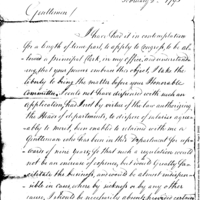 February 8. 1793
Gentlemen!
I have had it in contemplation
for a length of time past, to apply to Congress, to be al-
lowed a principal Clerk, in my office, and understand-
ing that your powers embrace this object, I take the
liberty to bring the matter before your Honorable
Committee,
application, had I not by virtue of the law authorizing
the Heads of departments, to dispose of salaries agree-
ably to merit, been enabled to retain with me a
Gentleman who has been in this Department for up-
wards of nine years; So that such a regulation would
not be an increase of expence, but would greatly fa-
cilitate the business, and would be almost indispen-
sible in case, when by sickness or by any other
cause, I should be necessarily absent,